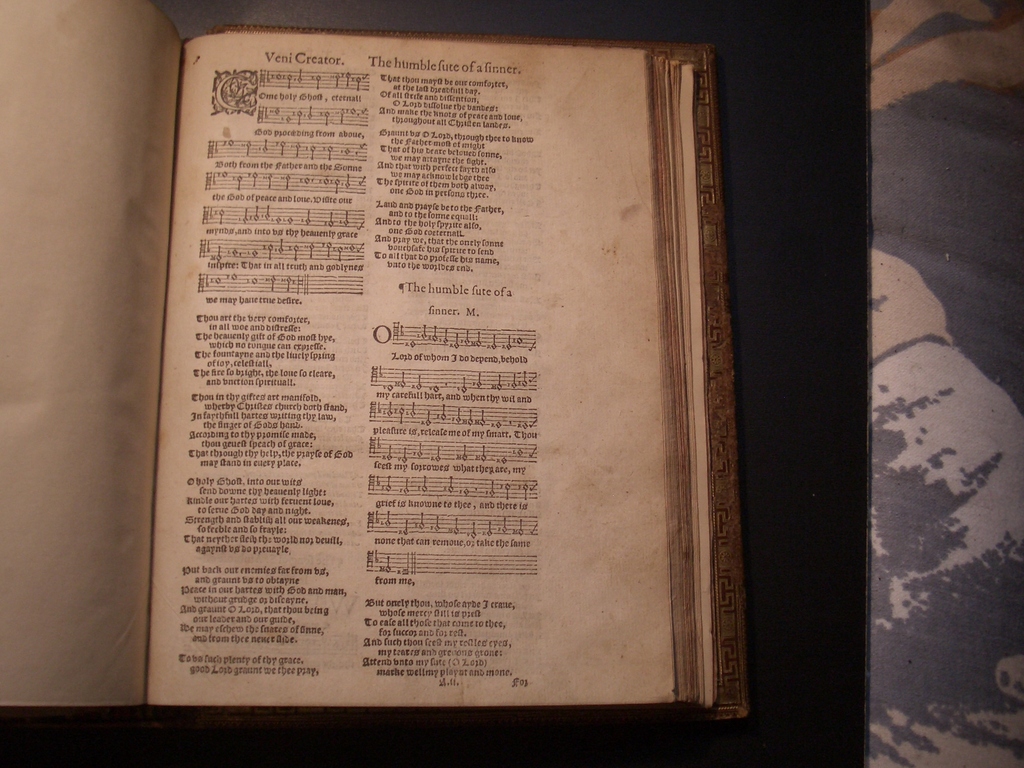 Veni Creator.
The humble sute of a sinner.
COme holy Ghost, eternall
God proceding from aboue,
Both from the Father and the Sonne
the God of peace and loue. Visite our
myndes, and into vs thy heauenly grace
inspire: That in all truth and godlynes
we may haue true desire.
Thou art the very comforter,
in all woe and distresse:
The heauenly gift of God most hye,
which no tongue can expresse.
The fountayne and the liuely spring
of ioy, celestiall,
The fire so bright, the loue so cleare,
and vnction spirituall.
Thou in thy giftes art manifold,
wherby Christes church doth stand,
In faythfull hartes writting thy law,
the finger of Gods hand.
According to thy promise made,
thou geuest speach of grace:
That through thy help, the prayse of God
may stand in euery place.
O holy Ghost, into our wits
send downe thy heauenly light:
Kindle our hartes with feruent loue,
to serue God day and night.
Strength and stablish all our weakenes,
so feeble and so frayle:
That neyther flesh the world nor deuill,
agaynst vs do preuayle.
Put back our enemies far from vs,
and graunt vs to obtayne
Peace in our hartes with God and man,
without grudge or disdayne.
And graunt O Lord, that thou being
our leader and our guide,
We may eschew the snares of sinne,
and from thee neuer slide.
To vs such plenty of thy grace.
good Lord graunt we thee pray,
That thou mayst be our comforter,
at the last dreadfull day.
Of all strife and dissention,
O Lord dissolue the bandes:
And make the knots of peace and loue,
throughout all Christen landes.
Graunt vs O Lord, through thee to know
the Father most of might
That of his deare beloued sonne,
we may attayne the sight.
And that with perfect fayth also
we may acknowledge thee
The spirite of them both alway,
one God in persons three.
Laud and prayse be to the Father,
and to the sonne equall:
And to the holy spyrite also,
one God coeternall.
And pray we, that the onely sonne
vouchsafe his spirite to send
To all that do professe his name,
vnto the worldes end.
¶The humble sute of a
sinner. M.
O Lord of whom I do depend, behold
my carefull hart, and when thy wil and
pleasure is, release me of my smart. Thou
seest my sorrowes what they are, my
grief is knowne to thee, and there is
none that can remoue, or take the same
from me,
But onely thou, whose ayde I craue,
whose mercy still is prest
To ease all those that come to thee,
for succor and for rest.
And such thou seest my restles eyes,
my teares and greuous grone:
Attend vnto my sute (O Lord)
marke well my playnt and mone.
A.ii.
For